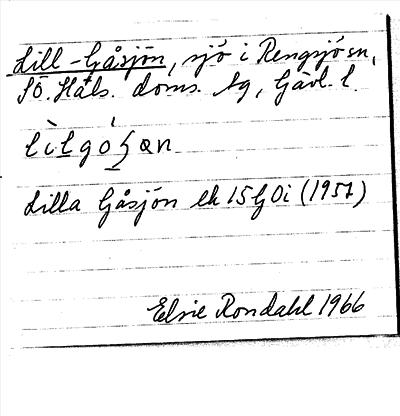 Lill-Gåsjön, sjö i Rengsjö sn,
Sö. Häls. doms. tg, Gävl. l.
Lilla Gåsjön ek 15G0i (1957)
Elsie Rondahl 1966